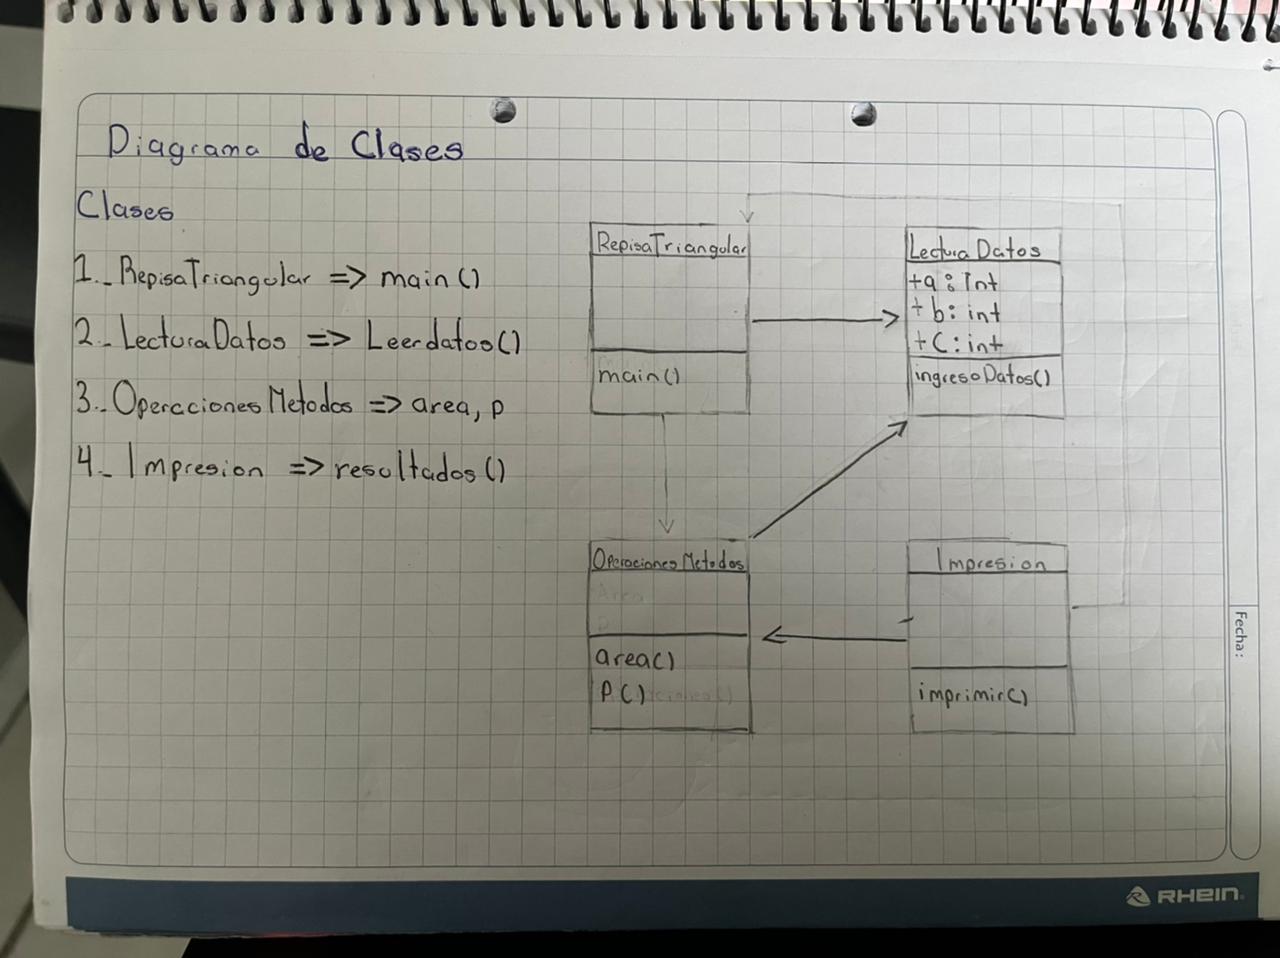 Diagrama de Clases
Clases
1._ RepisaTriangular => main()
2._ LecturaDatos => Leerdatos()
3._ OperacionesMetodos => area, p
4._ Impresion => resultados()
RepisaTriangular
main()
LecturaDatos
+a: Int
+b: int
+C: int
ingresoDatos()
OperacionesMetodos
Area
P
area()
P()
Impresion
imprimir()
Fecha:
RHEIN